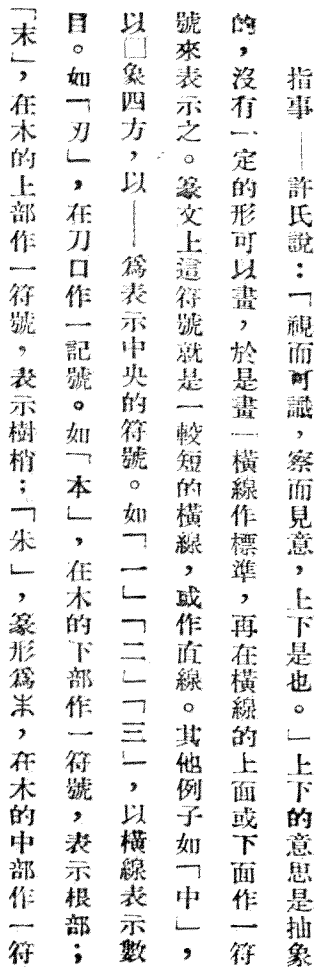 指事——許氏說：「視而可識，察而見意，上下是也。」上下的意思是抽象
的，沒有一定的形可以畫，於是畫一橫線作標準，再在橫線的上面或下面作一符
號來表示之。篆文上這符號就是一較短的橫線，或作直線。其他例子如「中」，
以□象四方，以——爲表示中央的符號。如「一」「二」「三」，以橫線表示數
目。如「刃」，在刀口作一記號。如「本」，在木的下部作一符號，表示根部；
「末」，在木的上部作一符號，表示樹梢；「朱」，篆形爲朱，在木的中部作一符